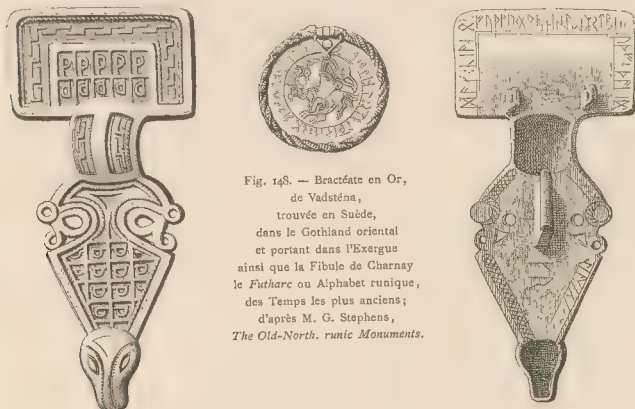 Fig. 148. — Bractéate en Or,
de Vadsténa,
trouvée en Suède,
dans le Gothland oriental
et portant dans l'Exergue
ainsi que la Fibule de Charnay
le Futharc ou Alphabet runique,
des Temps les plus anciens;
d'après M. G. Stephens,
The Old-North. runic Monuments.